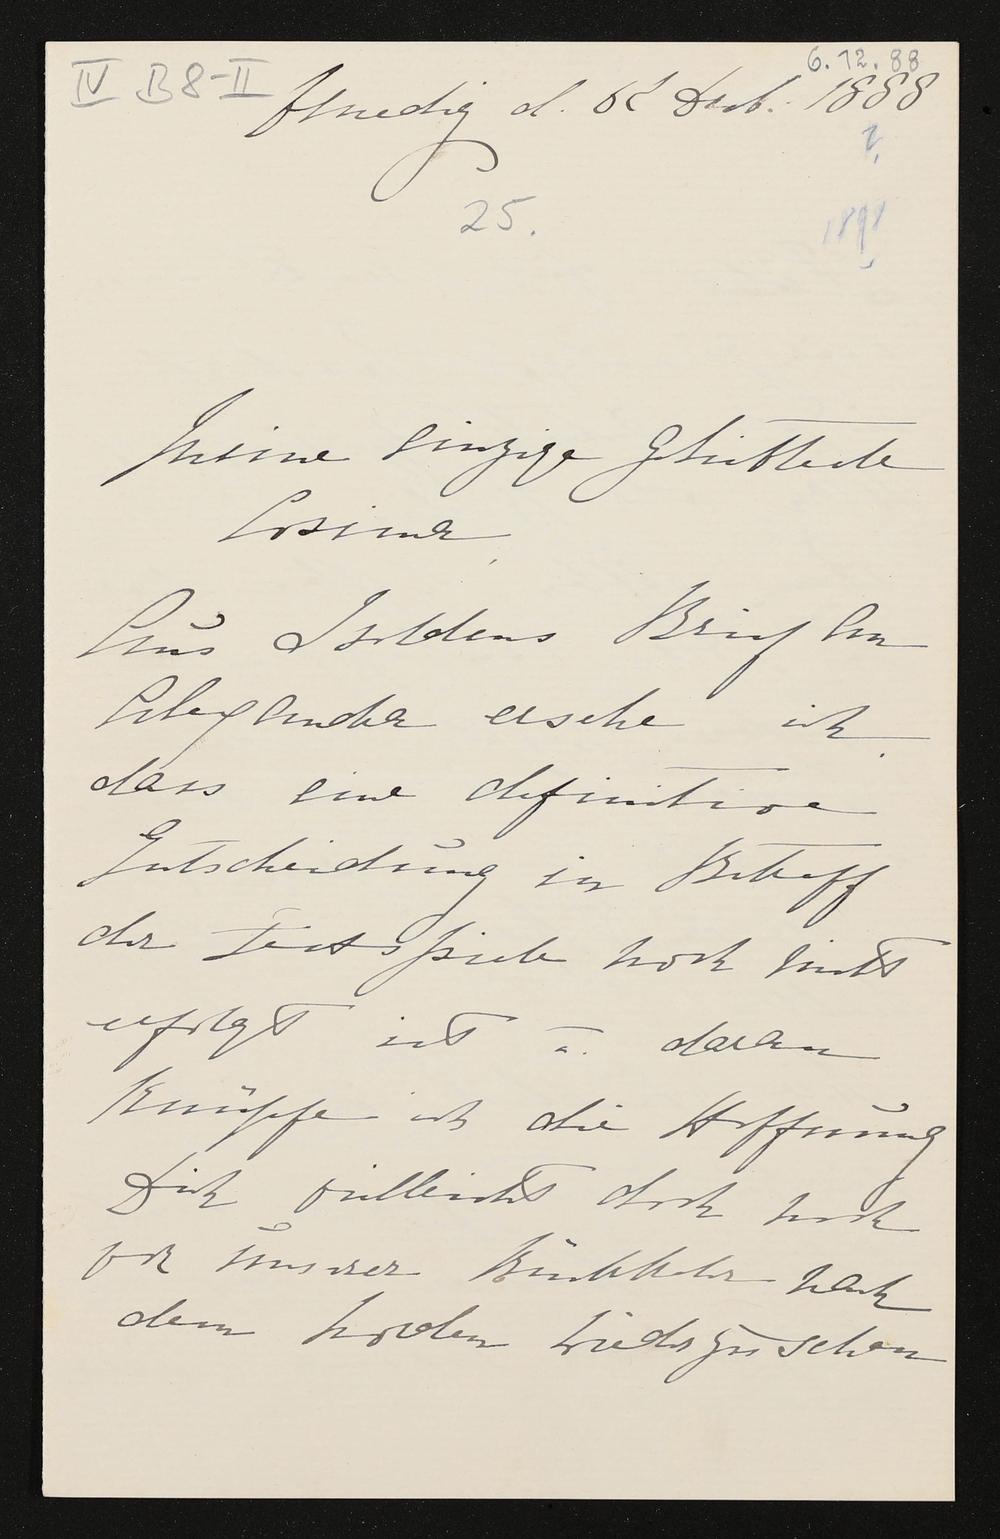 IV B 8-II
6.12.88
Venedig d. 6t Decb. 1888
?
1898
25.
Meine einzige Geliebteste
Cosima
Aus Isoldens Brief an
Alexander ersehe ich
dass eine definitive
Entscheidung in Betreff
der Festspiele noch nicht
erfolgt ist u. daran
knüpfe ich die Hoffnung
Dich vielleicht doch noch
vor unserer Rückkehr nach
dem Norden wiederzusehen